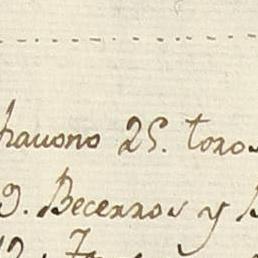 hauono 25. toros
9. Becerros y
12. 7